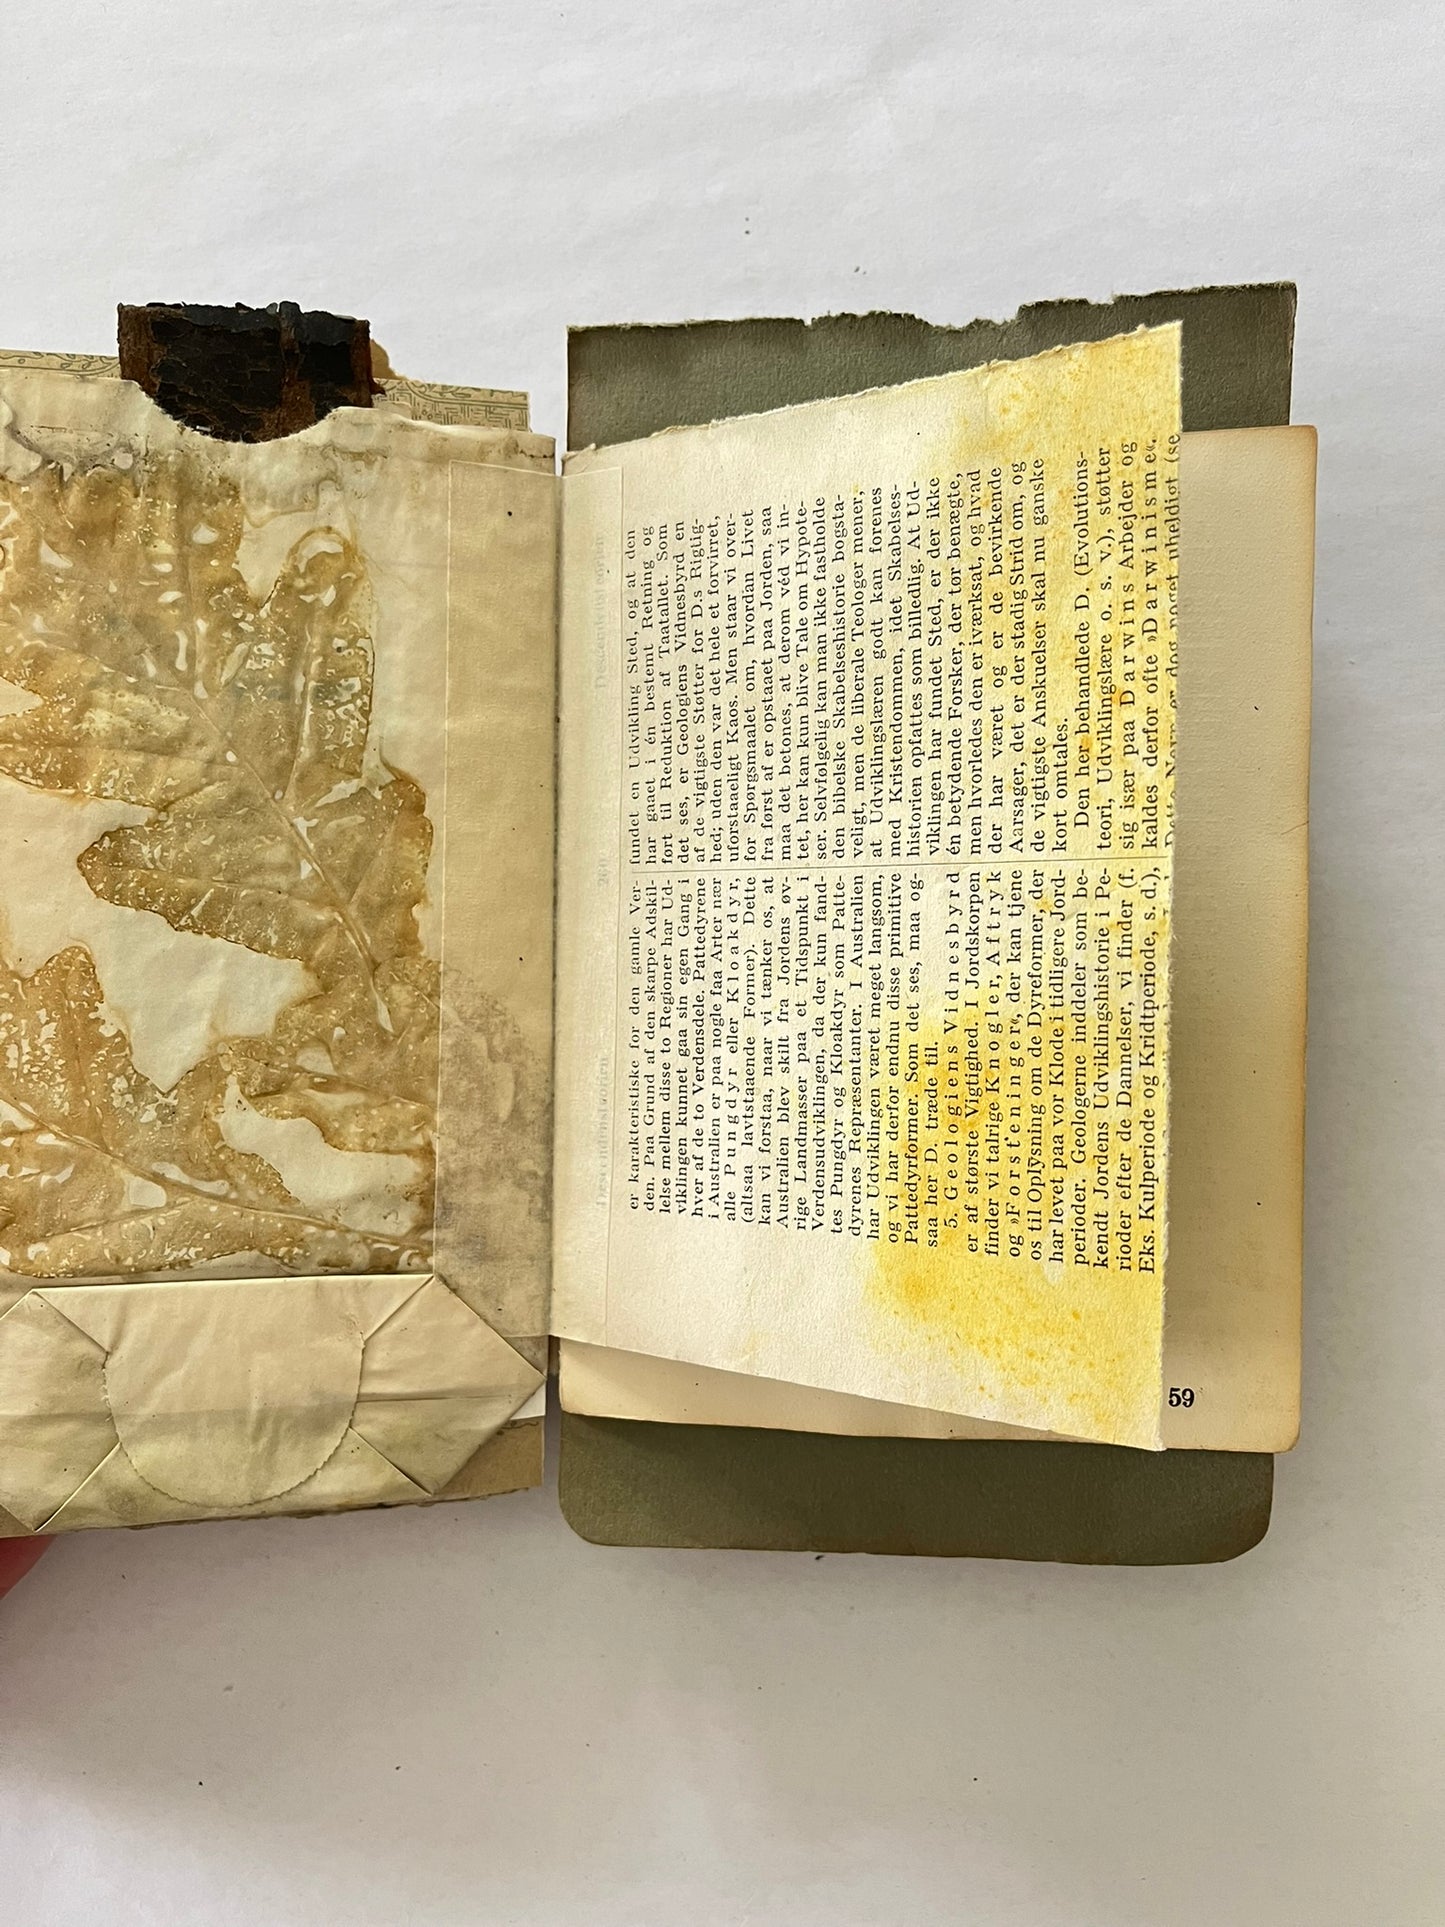 er karakteristiske for den gamle Ver-
den. Paa Grund af den skarpe Adskil-
lelse mellem disse to Regioner har Ud-
viklingen kunnet gaa sin egen Gang i
hver af de to Verdensdele. Pattedyrene
i Australien er paa nogle faa Arter nær
alle Pungdyr eller Kloakdyr,
(altsaa lavtstaaende Former). Dette
kan vi forstaa, naar vi tænker os, at
Australien blev skilt fra Jordens øv-
rige Landmasser paa et Tidspunkt i
Verdensudviklingen, da der kun fand-
tes Pungdyr og Kloakdyr som Patte-
dyrenes Repræsentanter. I Australien
har Udviklingen været meget langsom,
og vi har derfor endnu disse primitive
Pattedyrformer. Som det ses, maa og-
saa her D. træde til.
5. Geologiens Vidnesbyrd
er af største Vigtighed. I Jordskorpen
finder vi talrige Knogler, Aftryk
og »Forsteninger«, der kan tjene
os til Oplysning om de Dyreformer, der
har levet paa vor Klode i tidligere Jord-
perioder. Geologerne inddeler som be-
kendt Jordens Udviklingshistorie i Pe-
rioder efter de Dannelser, vi finder (f.
Eks. Kulperiode og Kridtperiode, s. d.),
fundet en Udvikling Sted, og at den
har gaaet i én bestemt Retning og
ført til Reduktion af Taatallet. Som
det ses, er Geologiens Vidnesbyrd en
af de vigtigste Støtter for D.s Rigtig-
hed; uden den var det hele et forvirret,
uforstaaeligt Kaos. Men staar vi over-
for Spørgsmaalet om, hvordan Livet
fra først af er opstaaet paa Jorden, saa
maa det betones, at derom véd vi in-
tet, her kan kun blive Tale om Hypote-
ser. Selvfølgelig kan man ikke fastholde
den bibelske Skabelseshistorie bogsta-
veligt, men de liberale Teologer mener,
at Udviklingslæren godt kan forenes
med Kristendommen, idet Skabelses-
historien opfattes som billedlig. At Ud-
viklingen har fundet Sted, er der ikke
én betydende Forsker, der tør benægte,
men hvorledes den er iværksat, og hvad
der har været og er de bevirkende
Aarsager, det er der stadig Strid om, og
de vigtigste Anskuelser skal nu ganske
kort omtales.
Den her behandlede D. (Evolutions-
teori, Udviklingslære o. s. v.), støtter
sig især paa Darwins Arbejder og
kaldes derfor ofte »Darwinisme«.
Dette Navn er dog noget uheldigt (se
59